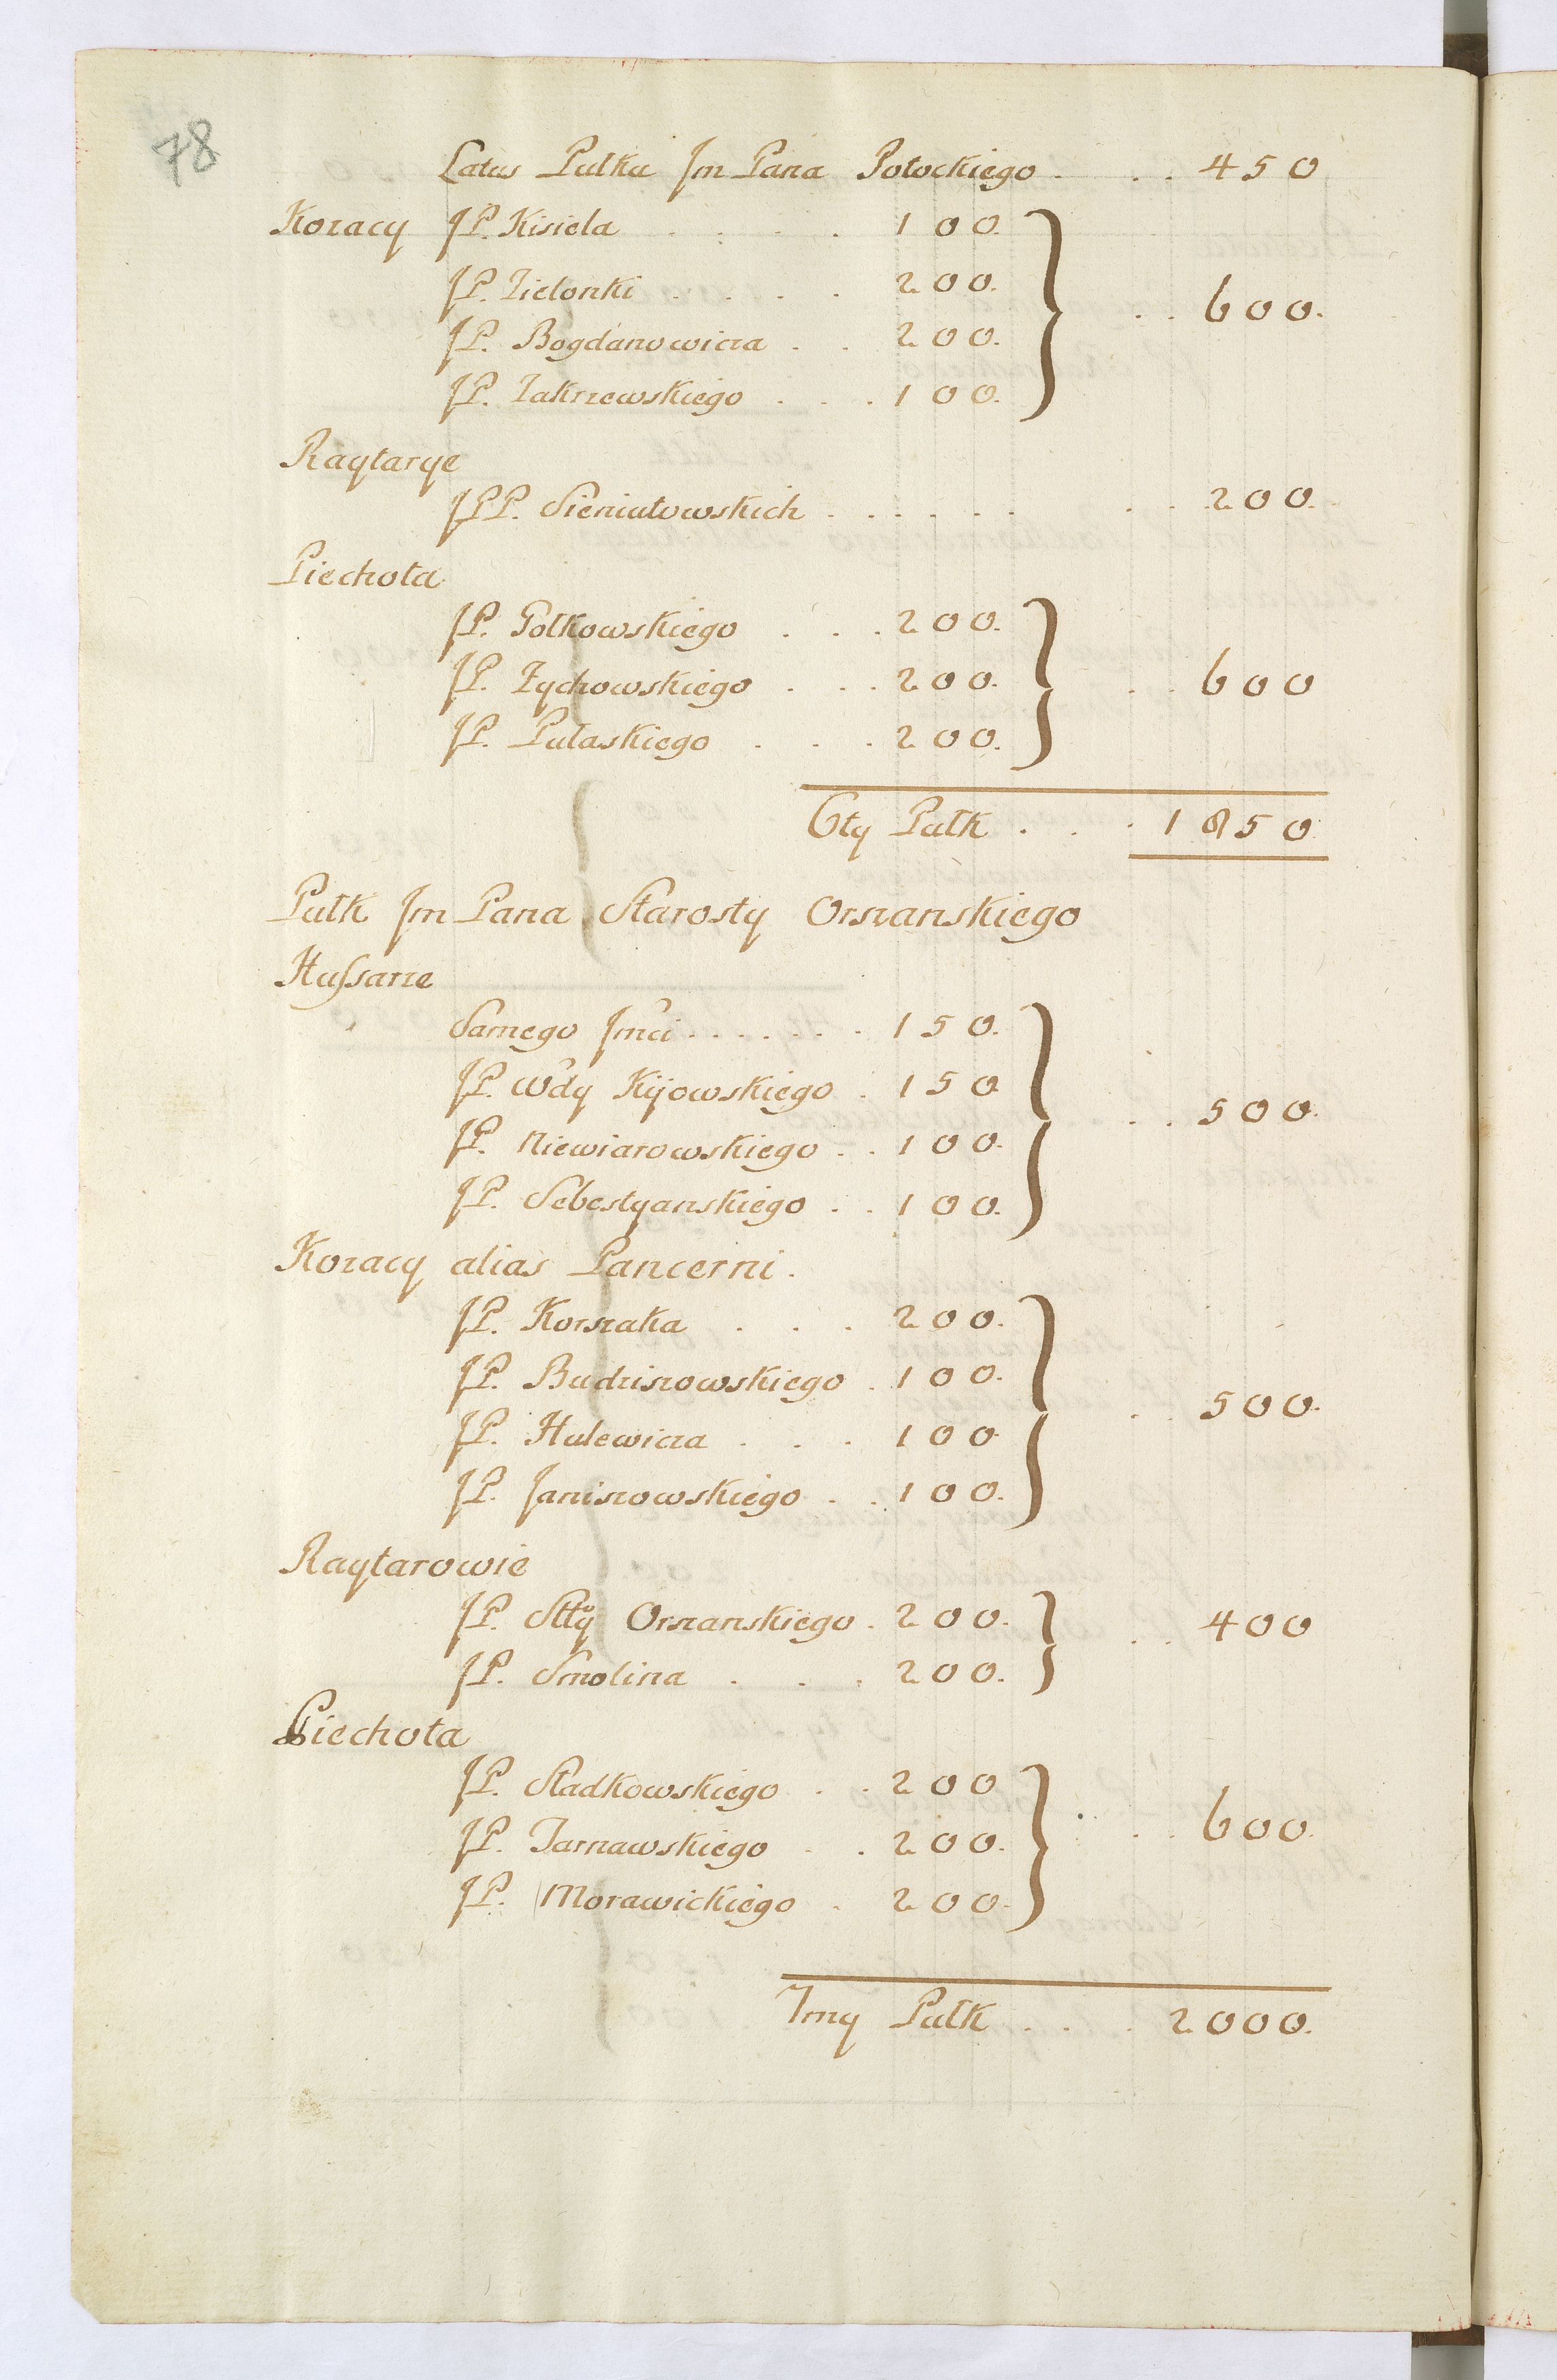 78
Latus Pułku Jm Pana Potockiego . . . 450
Kozacy JP. Kisiela . . . . 100.
JP. Zielonki . . . . 200.
600.
JP. Bogdanowicza . . 200.
JP. Zakrzewskiego . . . 100.
Raytarye
JPP. Sieniutowskich . . . . . . . . 200.
Piechota
JP. Połkowskiego . . . 200.
JP. Zychowskiego . . . 200. . . 600
JP. Pułaskiego . . . 200.
6ty Pułk . . . 1850
Pułk Jm Pana Starosty Orszanskiego
Hussarze
Samego Jmci . . . . . . 150.
JP. Wdy Kijowskiego . 150
. . 500.
JP. Niewiarowskiego . . 100.
JP. Sebestyanskiego . . 100.
Kozacy alias Pancerni.
JP. Korszaka . . . 200.
JP. Budziszowskiego . 100.
. . 500.
JP. Hulewicza . . . 100
JP. Janiszowskiego . . 100.
Raytarowie
JP. Stty Orszanskiego . 200. . . 400
JP. Smolina . . . 200.
Piechota
JP. Sładkowskiego . . 200
JP. Tarnawskiego . . 200. . . 600.
JP. Morawickiego . 200.
7my Pułk . . . 2000.